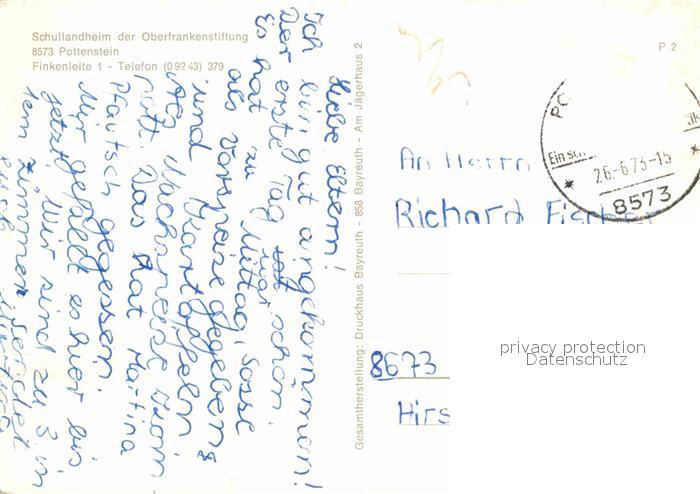 Schullandheim der Oberfrankenstiftung
8573 Pottenstein
Finkenleite 1 - Telefon (0 92 43) 379
Liebe Eltern!
Ich bin gut angekommen!
Der erste Tag war schön.
Es hat zu Mittag, Sosse
als Vorspeise gegeben
und Kartoffeln
rott. Das hat Martina
Pfautsch gegessen.
Mir gefällt es hier bis
jetzt. Wir sind zu 3. in
Zimmer.
Gesamtherstellung: Druckhaus Bayreuth - 858 Bayreuth - Am Jägerhaus 2
P 2
PO
Einsch
26.-6.73-15
8573
An Herrn
Richard Fischer
privacy protection
Datenschutz
8673
Hirs